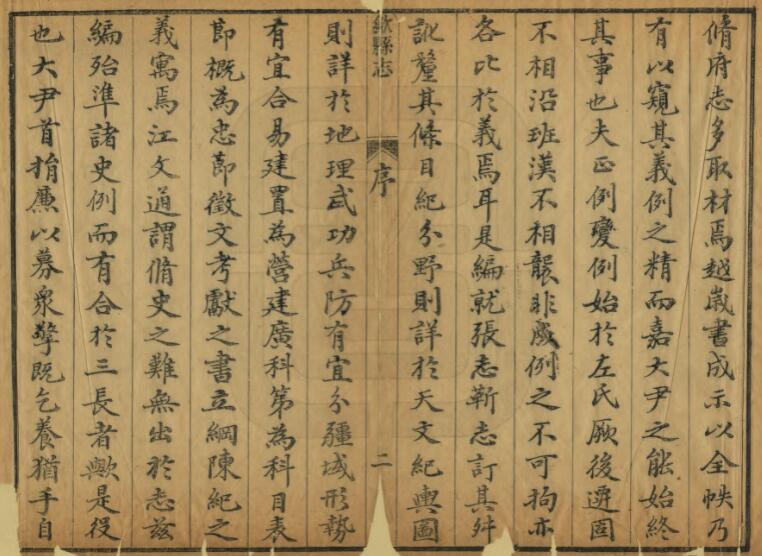 脩府志多取材焉越嵗書成示以全帙乃
有以窺其義例之精而嘉大尹之能始終
其事也夫正例變例始於左氏厥後遷固
不相沿班漢不相襲非成例之不可拘亦
各比於義焉耳是編就張志靳志訂其舛
訛釐其條目紀分野則詳於天文紀輿圖
歙縣志
序
二
則詳於地理武功兵防有宜分疆域形勢
有宜合易建置為營建廣科第為科目表
節概為忠節徵文考獻之書立綱陳紀之
義寓焉江文通謂脩史之難無出於志兹
編殆準諸史例而有合於三長者歟是役
也大尹首捐廉以募衆擎既乞養猶手自